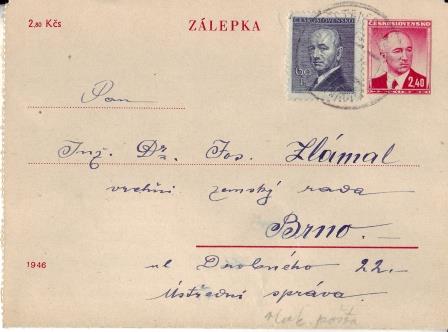 2,80 Kčs
ZÁLEPKA
ČESKOSLOVENSKO
60
ČESKOSLOVENSKO
2,40
Pan
Ing. Dr. Jos. Zlámal
vrchní zemský rada
Brno.
1946
ul Drobného 22.
Ústřední správa.
pošta